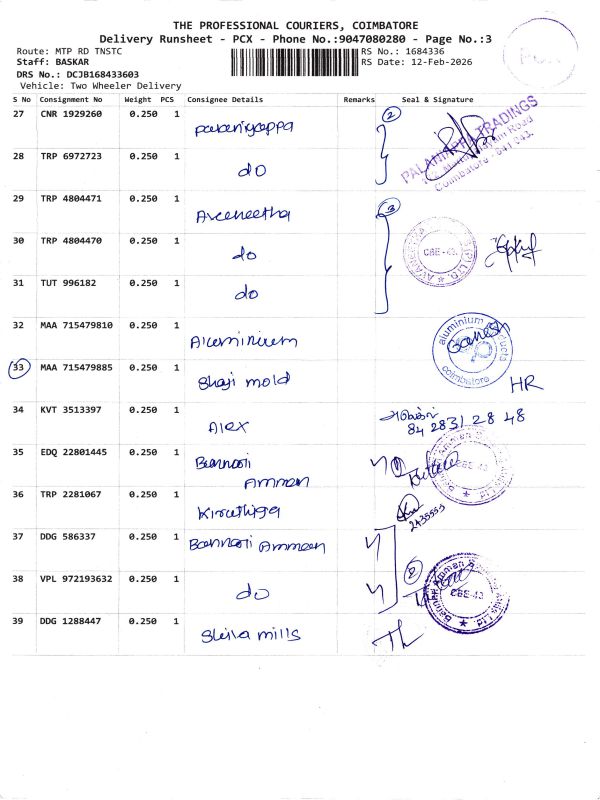 THE PROFESSIONAL COURIERS, COIMBATORE
Delivery Runsheet - PCX - Phone No.:9047080280 - Page No.:3
Route: MTP RD TNSTC
RS No.: 1684336
Staff: BASKAR
RS Date: 12-Feb-2026
DRS No.: DCJB168433603
Vehicle: Two Wheeler Delivery
S No Consignment No Weight PCS Consignee Details Remarks Seal & Signature
27 CNR 1929260 0.250 1 palaniyappa 2
PALANIYAPPA TRADINGS
Coimbatore - 641 043.
28 TRP 6972723 0.250 1 do
29 TRP 4804471 0.250 1 Avaneetha 3
30 TRP 4804470 0.250 1 do
CBE-43.
(P) LTD.
31 TUT 996182 0.250 1 do
32 MAA 715479810 0.250 1 Aluminium
aluminium products
coimbatore
Ganesh
33 MAA 715479885 0.250 1 Shaji mold HR
34 KVT 3513397 0.250 1 Alex
84 2831 28 48
35 EDQ 22801445 0.250 1 Bannari
Amman
CBE-43
36 TRP 2281067 0.250 1 Kiruthiga
2435555
37 DDG 586337 0.250 1 Bannari Amman
38 VPL 972193632 0.250 1 do 2
Bannari Amman
CBE-43
39 DDG 1288447 0.250 1 Shiva mills